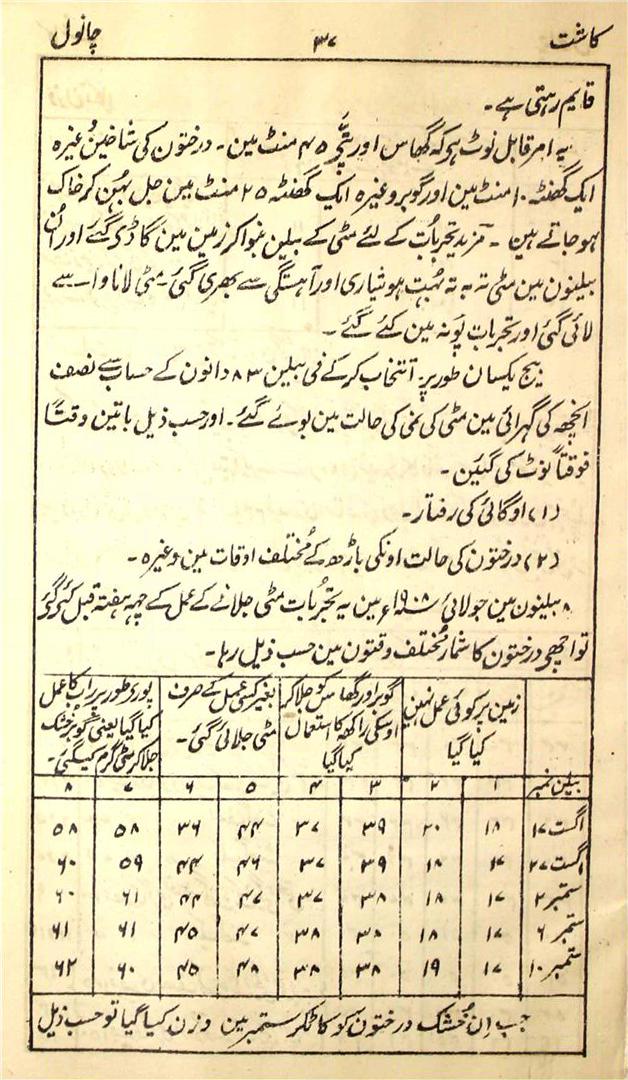 کاشت ۳۷ چانول
قایم رہتی ہے۔
یہ امر قابل نوٹ ہو کہ گھاس اور پتے ۴۵ منٹ مین۔ درختون کی شاخین وغیرہ
ایک گھنٹہ ۱۰ منٹ مین اور گوبر وغیرہ ایک گھنٹہ ۲۵ منٹ مین جل بہن کر خاک
ہو جاتے ہین۔ مزید تجربات کے لئے مٹی کے بیلین بنوا کر زمین مین گاڑی گئے اور اُن
بیلینون مین مٹی تہ بہ تہ بہت ہوشیاری اور آہستگی سے بھری گئی۔ مٹی لاناوا۔ سے
لائی گئی اور تجربات پونہ مین کئے گئے۔
بیج یکسان طور پر انتخاب کر کے فی بیلین ۸۳ دانون کے حساب سے نصف
انچھ کی گہرائی مین مٹی کی نمی کی حالت مین بوئے گئے۔ اور حسب ذیل باتین وقتاً
فوقتاً نوٹ کی گیئن۔
(۱) اوگائی کی رفتار۔
(۲) درختون کی حالت اونکی باڑھ کے مُختلف اوقات مین وغیرہ۔
۸ بیلنون مین جولائی ۱۹۰۸ء مین یہ تجربات مٹی جلانے کے عمل کے چہہ ہفتہ قبل کئے گئے
تو اچھی درختون کا شمار مُختلف وقتون مین حسب ذیل رہا۔
زمین پر کوئی عمل نہین کیا گیا | گوبر اور گھاس کو جلا کر اوسکی راکھہ کا استعمال کیا گیا | بغیر کسی عمل کے صرف مٹی جلائی گئی۔ | پوری طور پر راب کا عمل کیا گیا یعنی گوبر خشک جلا کر مٹی گرم کیگئی۔
بیلن نمبر ۱ ۲ ۳ ۴ ۵ ۶ ۷ ۸
اگست ۱۷ ۱۸ ۲۰ ۳۹ ۳۷ ۴۴ ۳۶ ۵۸ ۵۸
اگست ۲۷ ۱۷ ۱۸ ۳۹ ۳۷ ۴۶ ۴۴ ۵۹ ۶۰
ستمبر ۲ ۱۷ ۱۸ ۳۸ ۳۷ ۴۷ ۴۴ ۶۱ ۶۰
ستمبر ۶ ۱۷ ۱۸ ۳۸ ۳۸ ۴۷ ۴۵ ۶۱ ۶۱
ستمبر ۱۰ ۱۷ ۱۹ ۳۸ ۳۸ ۴۸ ۴۵ ۶۰ ۶۲
جب اِن خُشک درختون کو کاٹکر ستمبر مین وزن کیا گیا تو حسب ذیل